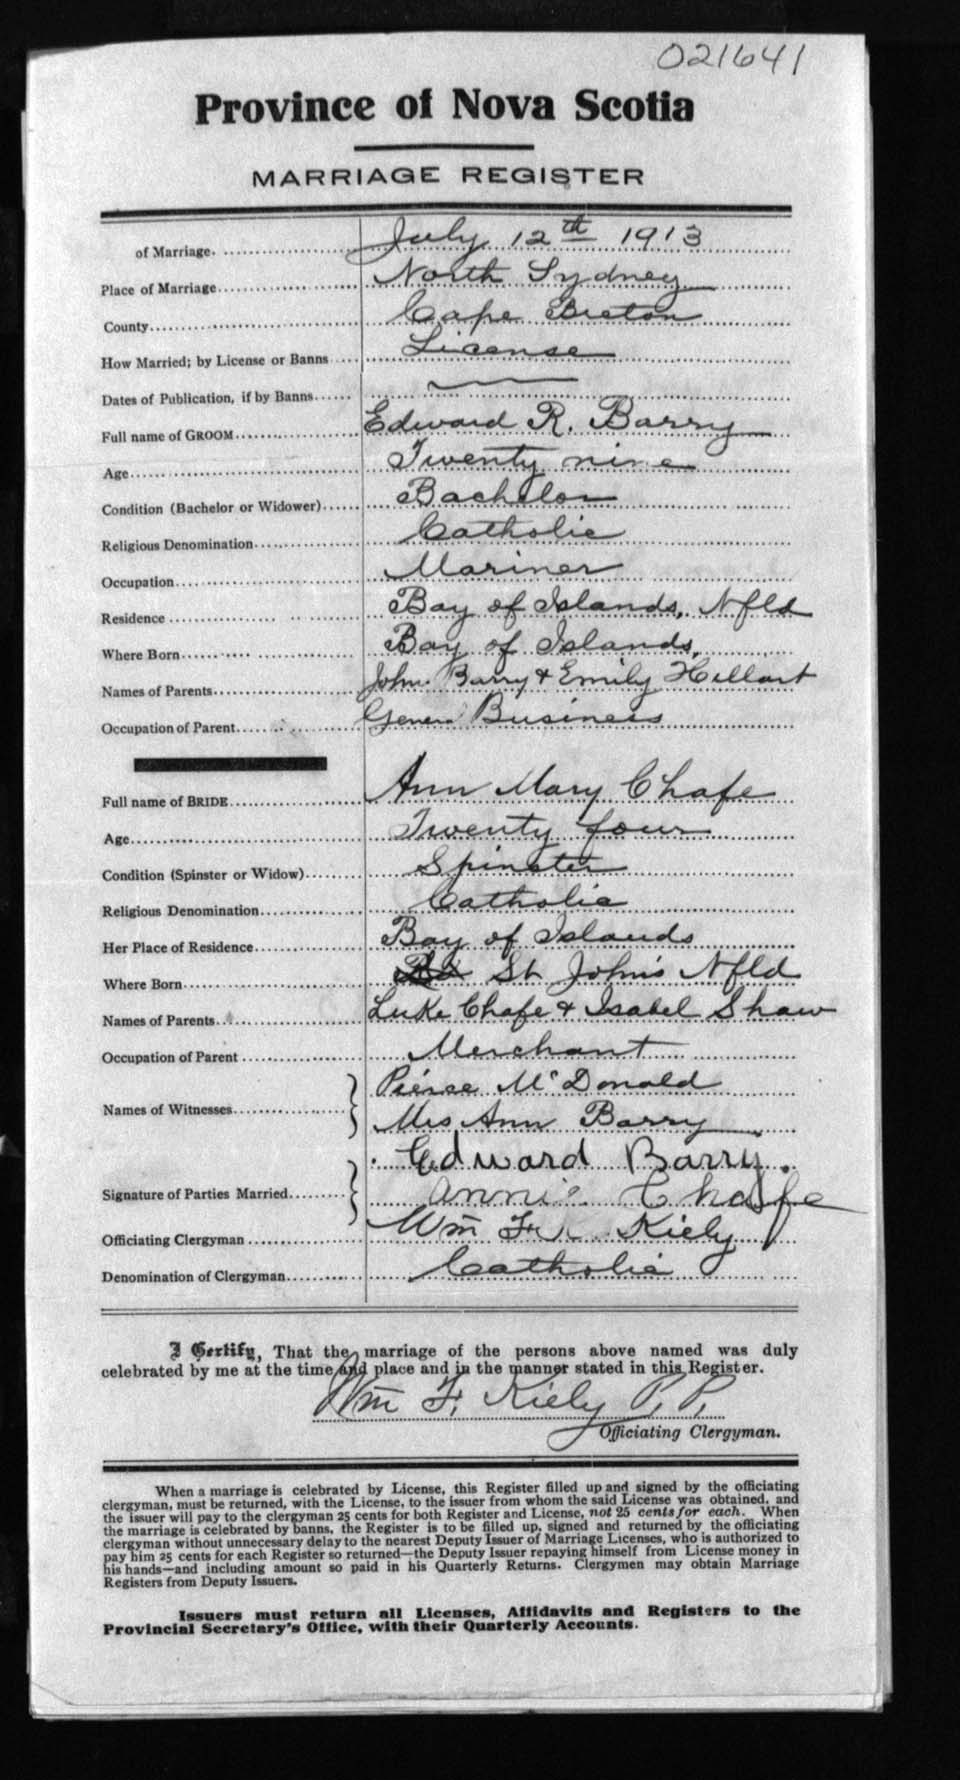 021641
Province of Nova Scotia
MARRIAGE REGISTER
of Marriage. July 12th 1913
Place of Marriage North Sydney
County Cape Breton
How Married; by License or Banns License
Dates of Publication, if by Banns
Full name of GROOM Edward R. Barry
Age Twenty nine
Condition (Bachelor or Widower) Bachelor
Religious Denomination Catholic
Occupation Mariner
Residence Bay of Islands, Nfld
Where Born Bay of Islands,
Names of Parents John Barry & Emily Hillart
Occupation of Parent General Business
Full name of BRIDE Ann Mary Chafe
Age Twenty four
Condition (Spinster or Widow) Spinster
Religious Denomination Catholic
Her Place of Residence Bay of Islands
Where Born St John's Nfld
Names of Parents Luke Chafe & Isabel Shaw
Occupation of Parent Merchant
Names of Witnesses Pierce McDonald
Mrs Ann Barry
Signature of Parties Married Edward Barry.
Annie Chafe
Officiating Clergyman Wm F. Kiely
Denomination of Clergyman Catholic
I Certify, That the marriage of the persons above named was duly
celebrated by me at the time and place and in the manner stated in this Register.
Wm F. Kiely P.P.
Officiating Clergyman.
When a marriage is celebrated by License, this Register filled up and signed by the officiating
clergyman, must be returned, with the License, to the issuer from whom the said License was obtained, and
the issuer will pay to the clergyman 25 cents for both Register and License, not 25 cents for each. When
the marriage is celebrated by banns, the Register is to be filled up, signed and returned by the officiating
clergyman without unnecessary delay to the nearest Deputy Issuer of Marriage Licenses, who is authorized to
pay him 25 cents for each Register so returned—the Deputy Issuer repaying himself from License money in
his hands—and including amount so paid in his Quarterly Returns. Clergymen may obtain Marriage
Registers from Deputy Issuers.
Issuers must return all Licenses, Affidavits and Registers to the
Provincial Secretary's Office, with their Quarterly Accounts.